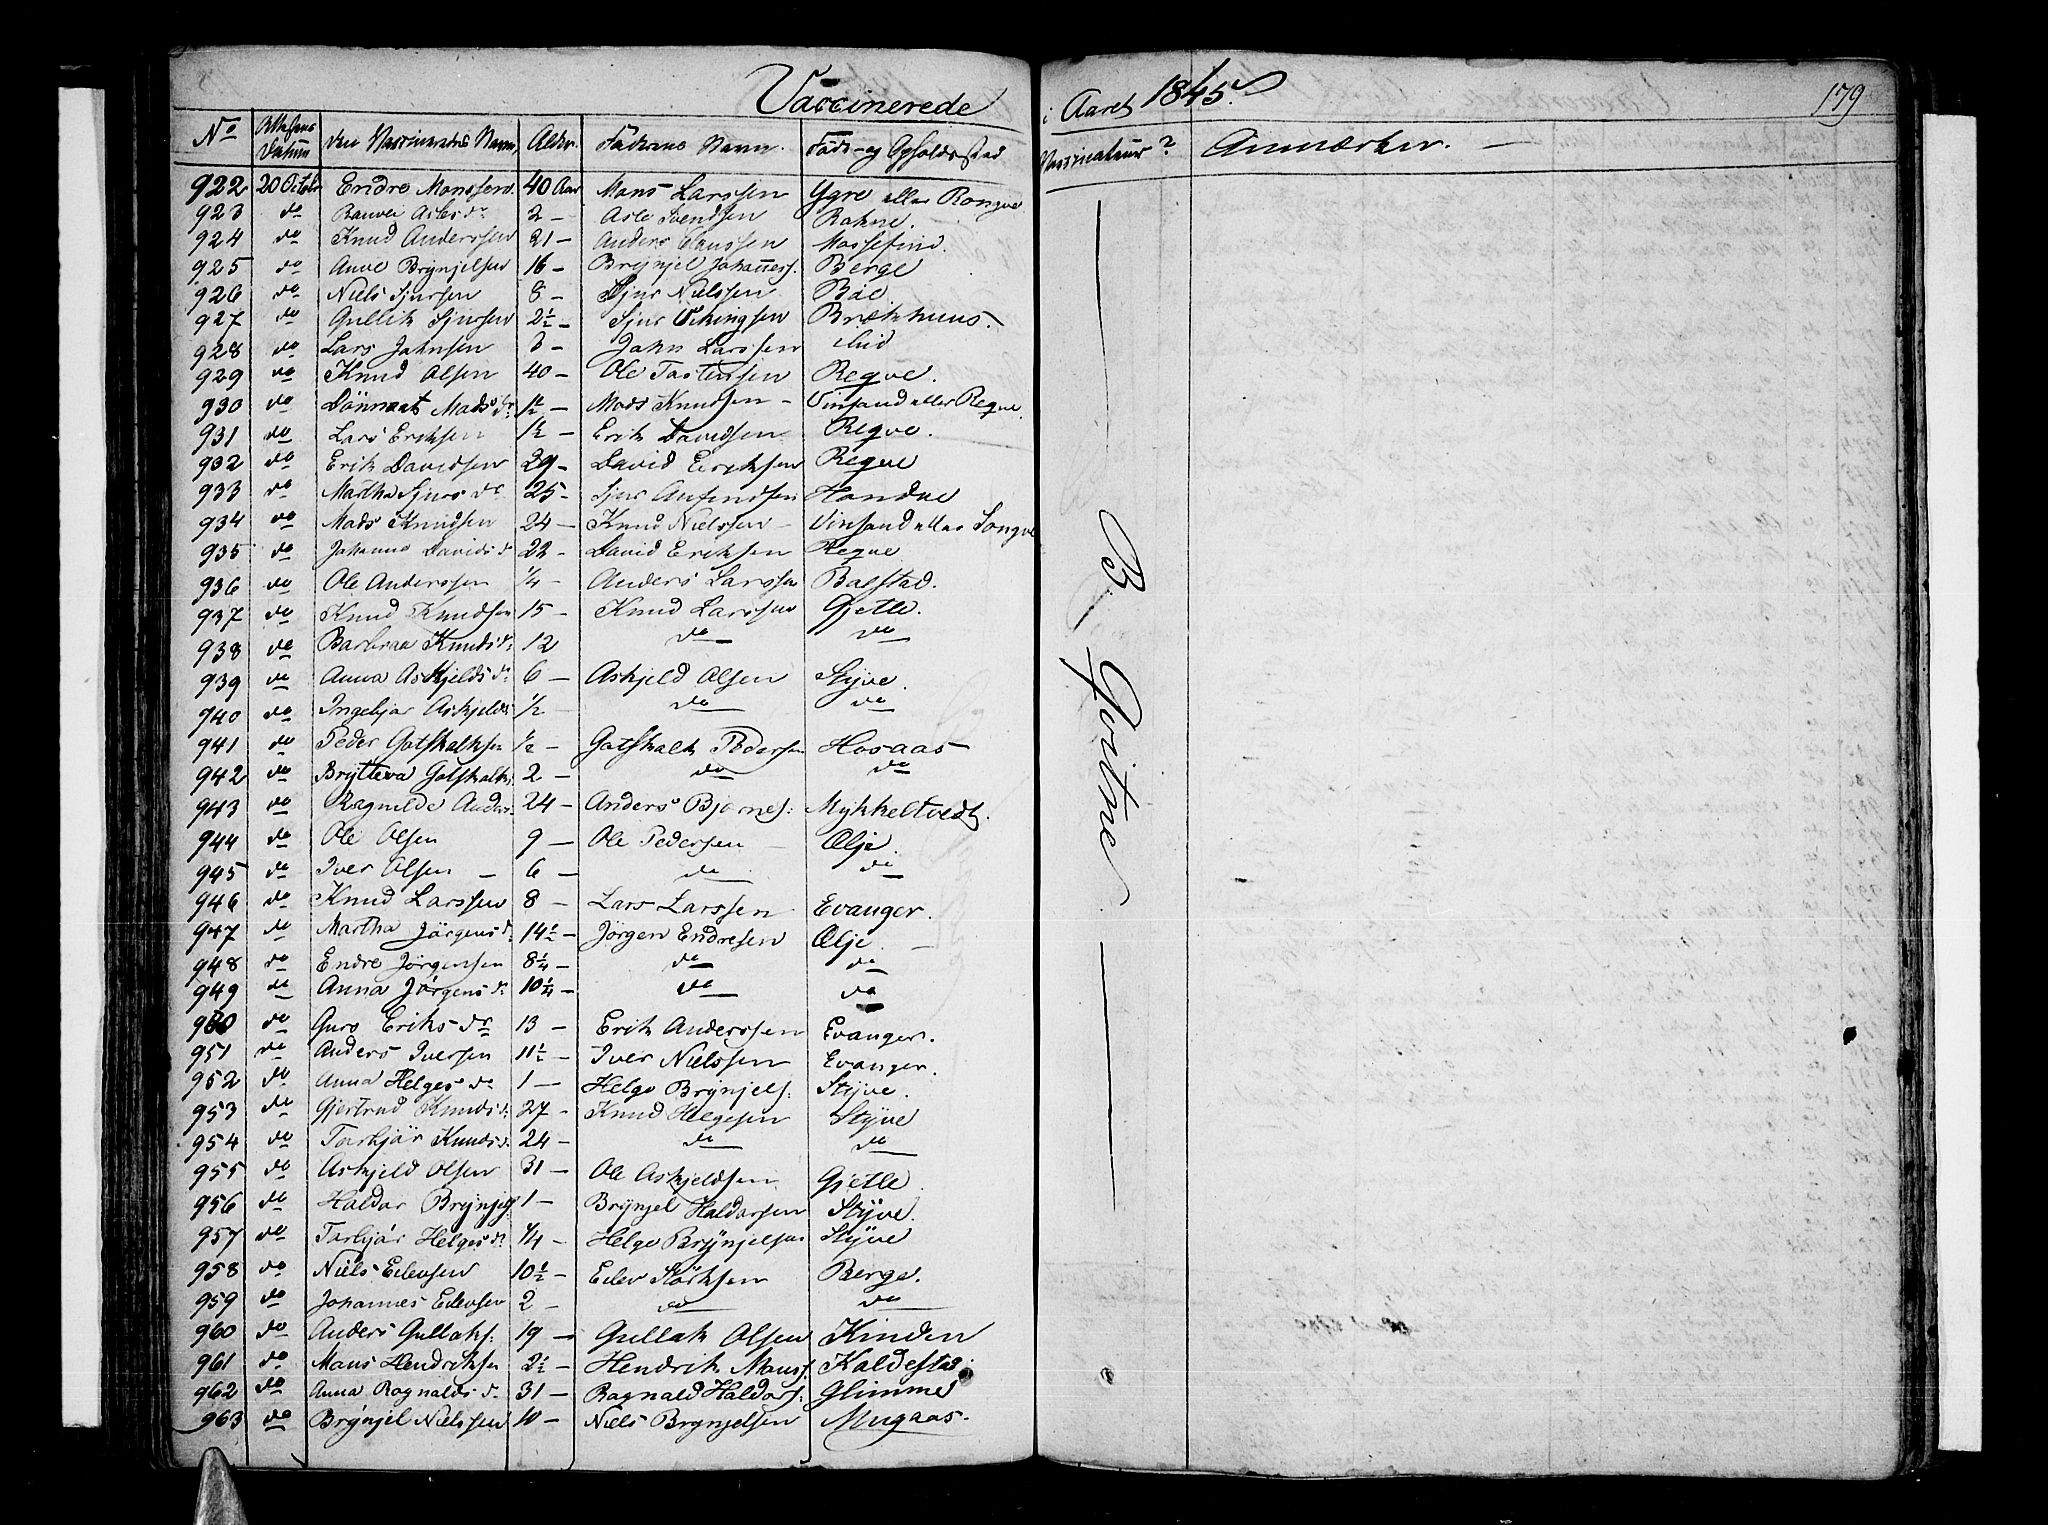 Vaccinerede i Aaret 1845. 179
No Attestens Datum den Vaccineredes Navn Alder Fadrens Navn. Føde- og Opholdssted Vaccinateur? Anmærkn.
922 20 Octobr Endre Monssen 40 Aar Mons Larssen Ygre eller Rongve
923 do Asles dr 2 — Asle Svendsen Rokne.
924 do Knud Anderssen 21 — Anders Clausen
925 do Anve Brynjelsen 16 — Brynjel Johanness. Berge
926 do Niels Sjursen 8 — Sjur Nielssen Böe
927 do Gullik Sjursen 2½ — Sjur Vikingsen Brækhuus.
928 do Lars Johnsen 3 — John Larssen ibid
929 do Knud Olsen 40 — Ole Tostensen Reqve.
930 do Mads dr 1½ — Mads Knudsen — Vinsand eller Reqve.
931 do Lars Eriksen 1½ — Erik Davidsen Reqve.
932 do Erik Davidsen 29 — David Eriksen Reqve
933 do Martha Sjurs dr 25 — Sjur Anfindsen
934 do Mads Knudsen 24 — Knud Nielssen — Vinsand eller Songve
935 do Johanne Davids dr 22 — David Eriksen Reqve
936 do Ole Anderssen ¼ — Anders Larssen Bolstad.
937 do Knud Knudsen 15 — Knud Larssen Gjelle.
938 do Barbraa Knuds dr 12 do do
939 do Anna Askjelds dr 6 — Askjeld Olsen Styve.
940 do Ingebjør Askjelds ½ — do do
941 do Peder Gotskalksen ½ — Gotskalk Pedersen Hosaas
942 do Brytteva Gotskalks 2 — do do
943 do Ragnilde Anders 24 — Anders Bjørnes: Mykkeltvedt.
944 do Ole Olsen 9 — Ole Pedersen Ælje.
945 do Iver Olsen — 6 — do do
946 do Knud Larssen 8 — Lars Larssen Evanger.
947 do Martha Jörgens dr 14½ — Jörgen Endresen Ælje. —
948 do Endre Jörgensen 8¼ — do do
949 do Anna Jörgens dr 10¼ — do do
950 do Guro Eriks dr 13 — Erik Anderssen Evanger.
951 do Anders Iversen 11½ — Iver Nielssen Evanger.
952 do Anna Helges dr 1 — Helge Brynjels: Styve.
953 do Gjertrud Knuds dr 27 — Knud Helgesen Styve
954 do Torbjör Knuds dr 24 — do do
955 do Askjeld Olsen 31 — Ole Askjeldsen Gjelle.
956 do Haldor Brynjels 1 — Brynjel Haldorsen Styve.
957 do Torbjör Helges dr ¼ — Helge Brynjelsen Styve
958 do Niels Eilevsen 10½ — Eilev Störksen Berge.
959 do Johannes Eilevsen 2 — do do
960 do Anders Gullaks: 19 — Gullak Olsen Kinden
961 do Mons Hendriksen 2½ — Hendrik Monss. Kaldestad.
962 do Anna Rognalds dr 31 — Rognald Haldors: Glimme
963 do Brynjel Nielssen 10 — Niels Brynjelsen Mugaas.
B. Qvitne